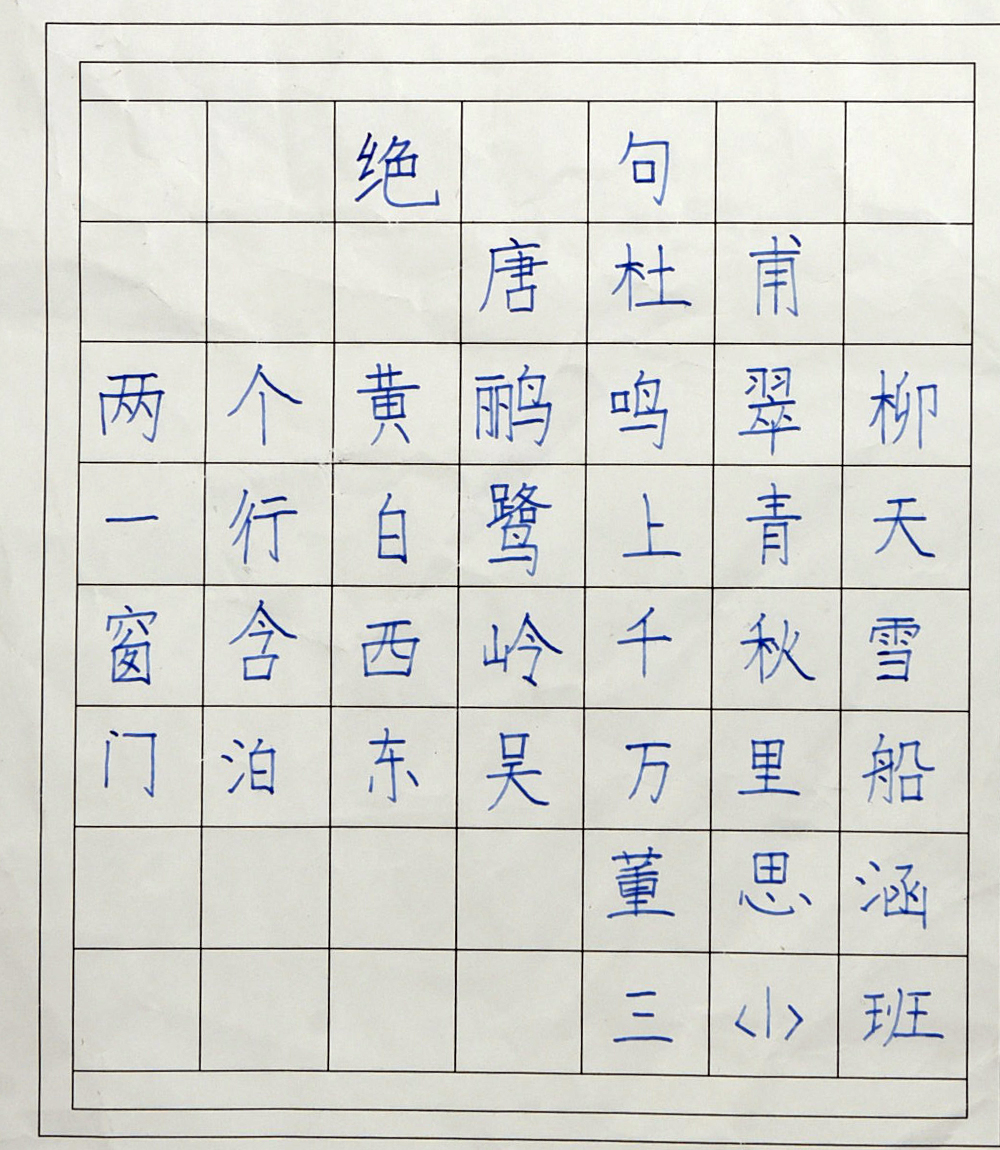 绝句
唐杜甫
两个黄鹂鸣翠柳
一行白鹭上青天
窗含西岭千秋雪
门泊东吴万里船
董思涵
三<1>班